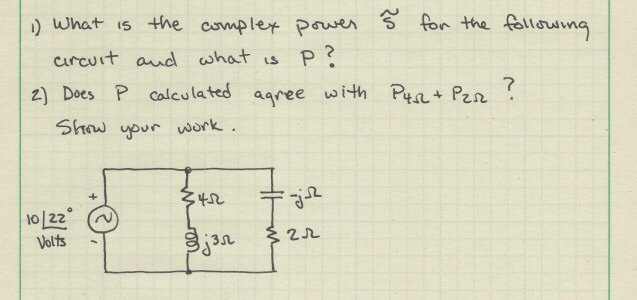 1) What is the complex power S̃ for the following
circuit and what is P?
2) Does P calculated agree with P4Ω + P2Ω ?
Show your work.
4Ω
-jΩ
+
10∠22°
Volts
-
j3Ω
2Ω